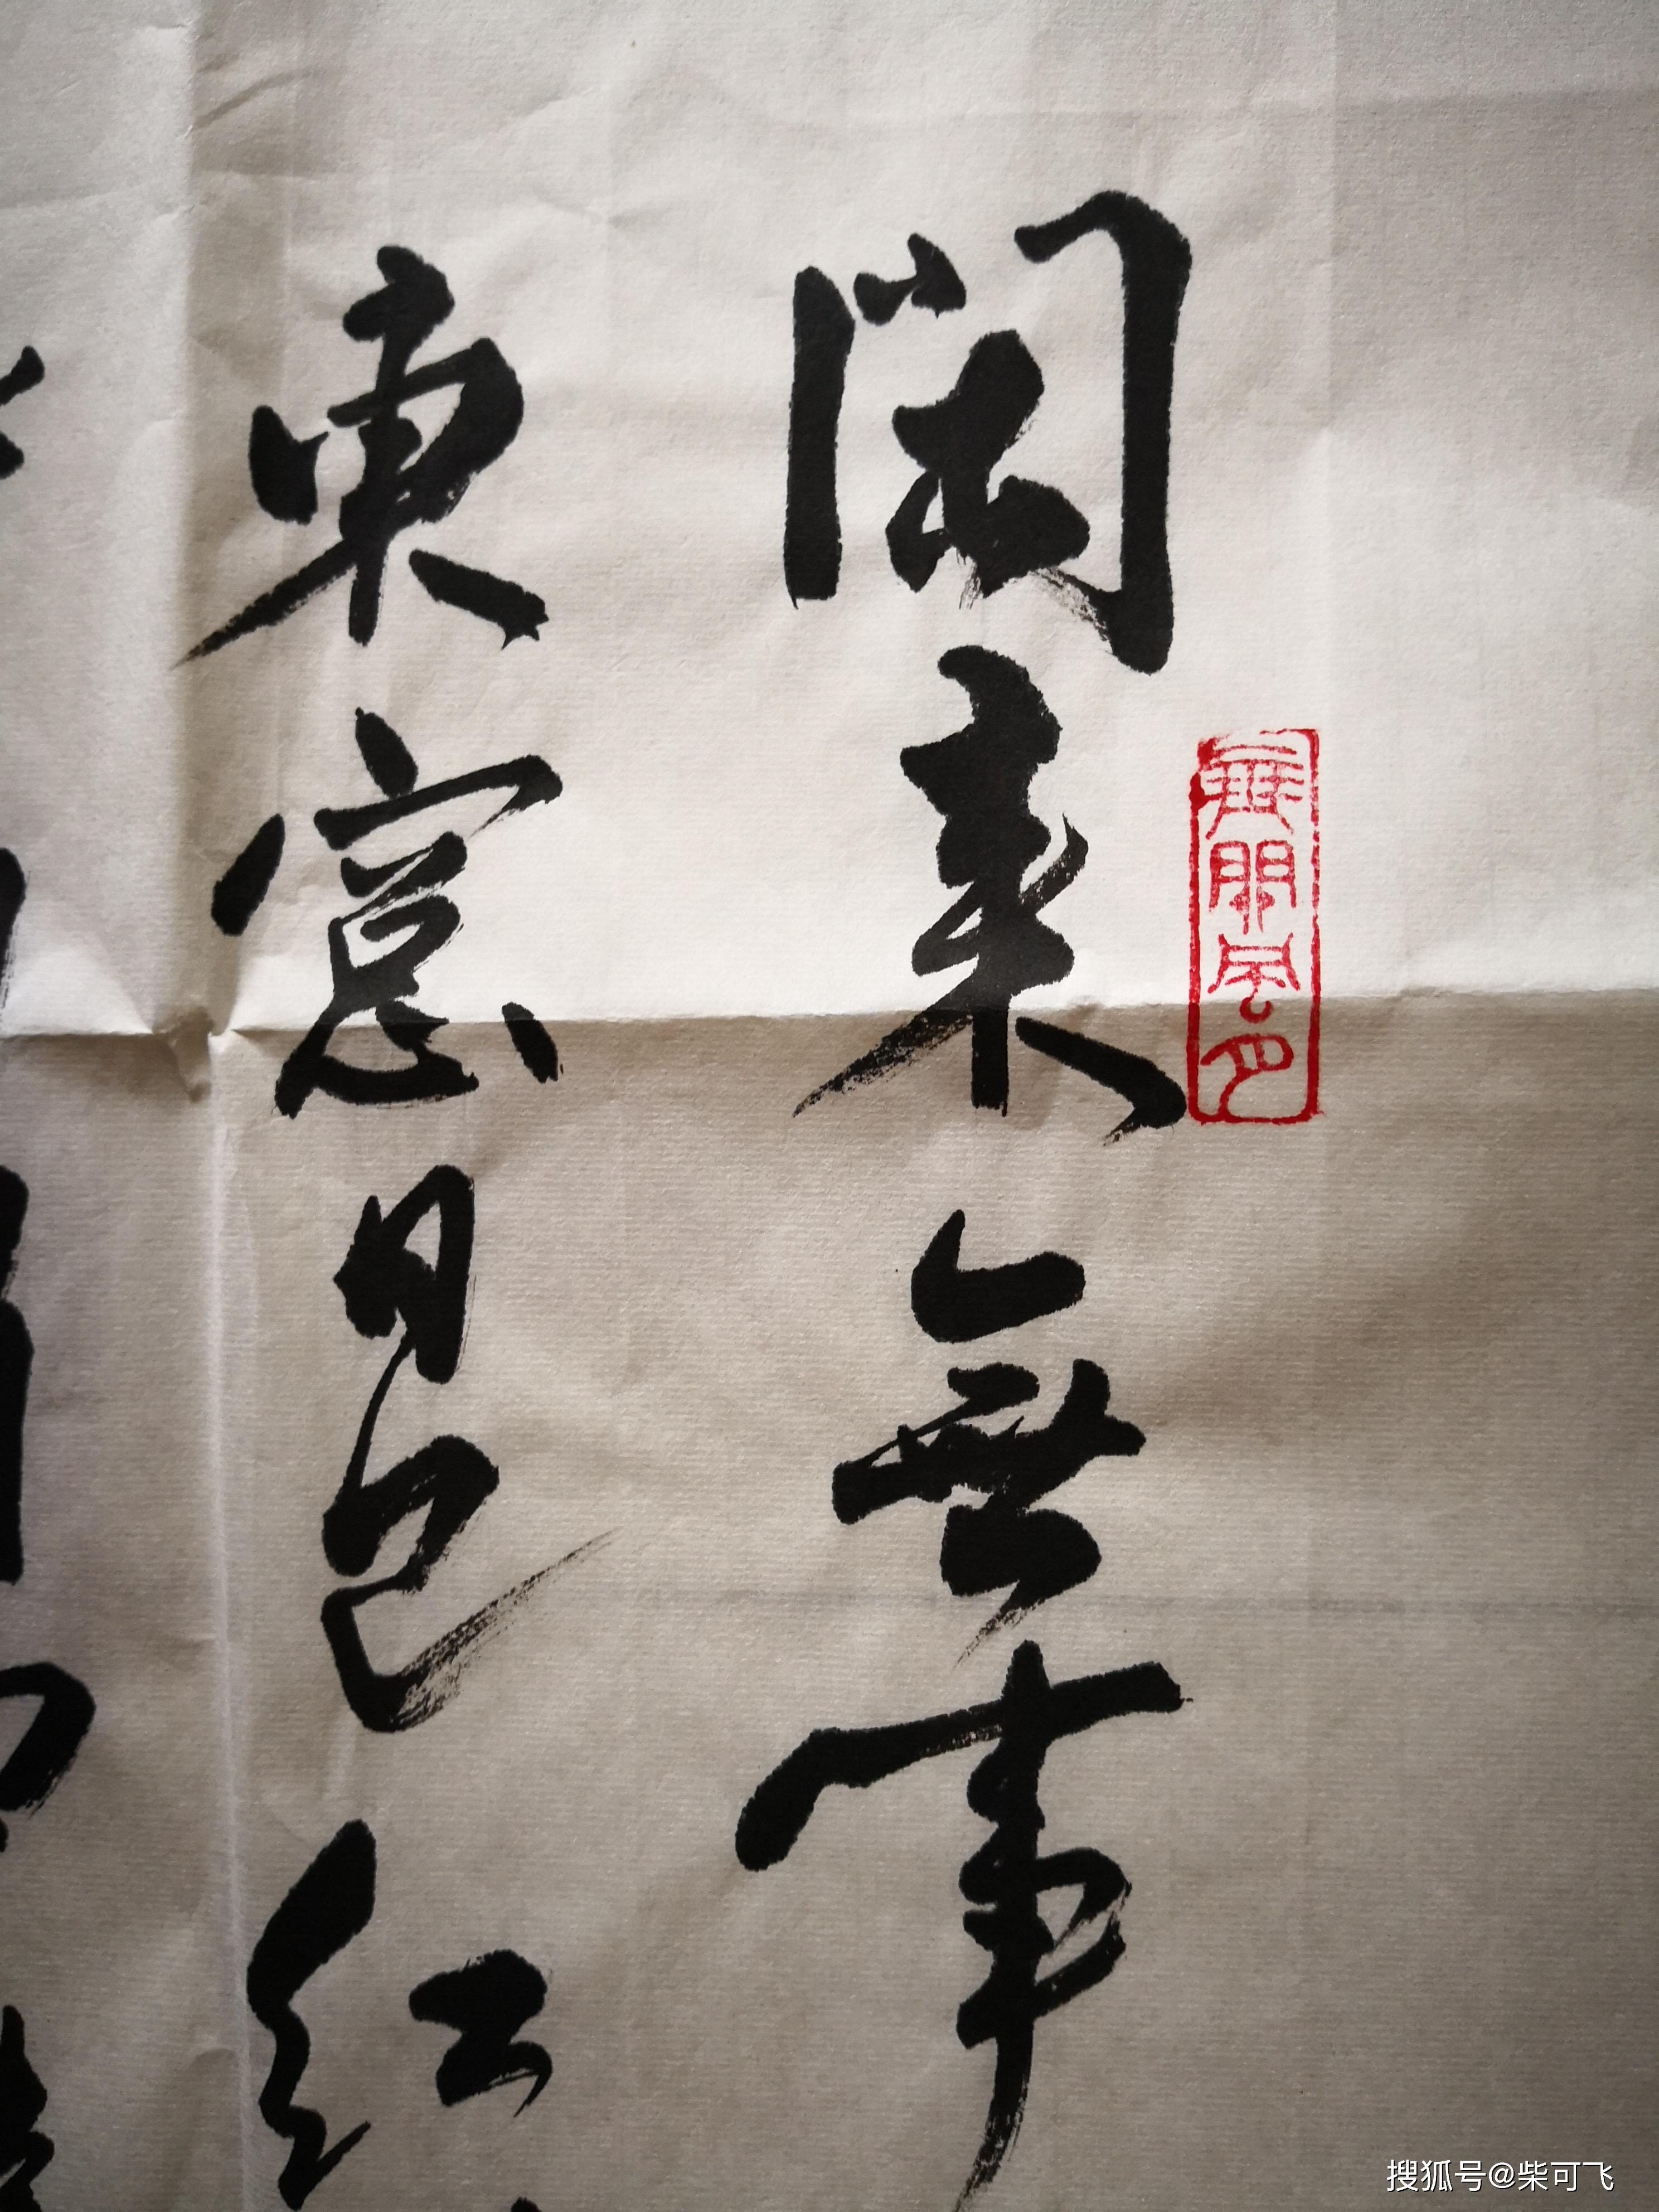 閑来無事
東窓日已紅
搜狐号@柴可飞